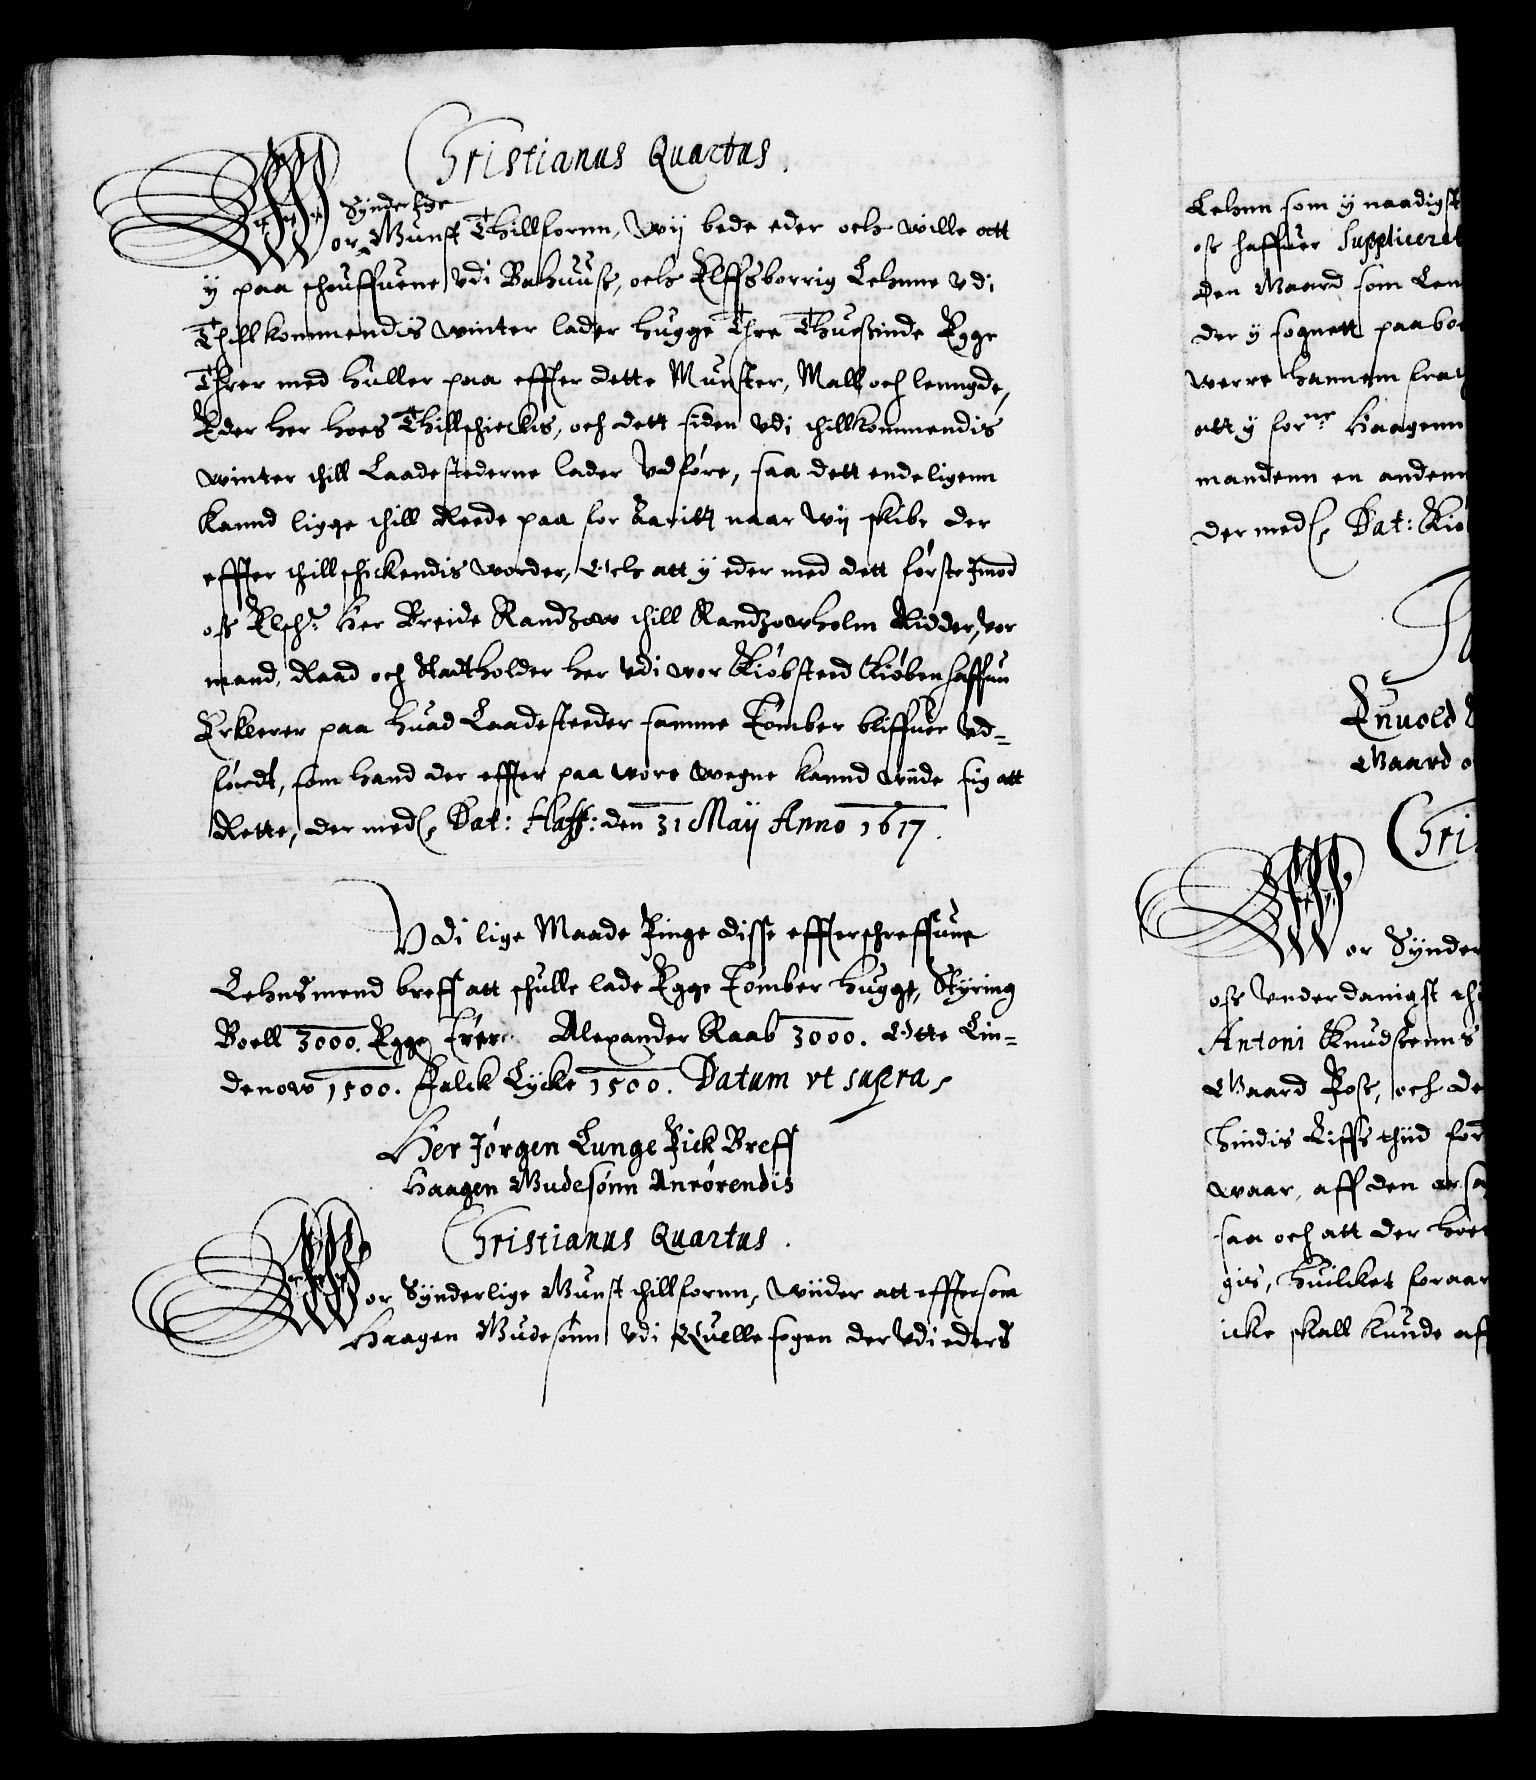 Christianus Quartus.
Synderlige
Wor Gunst Thillfornn, Wij bede eder och wille att
y paa schouffuene vdi Bahuuss, och Elffsborrig Lehnne vdi
Thillkommendis winter lader hugge Thre Thuesinde Egge
Threr med huller paa effter dette Munster, Mall och lenngde,
Eder her hoes Thillschickis, och dett siden vdi thillkommendis
winter thill Laadestederne lader Vdföre, saa dett endeligenn
kannd ligge thill Reede paa for Aaritt naar wij skibe der
effter thillschickendis worder, Och att y eder med dett förste Imod
oss Elsch: Her Breide Randzow thill Randzowholm Ridder, vor
mand, Raad och Stadtholder her vdi wor Kiöbsteed Kiöbenhaffun
Erklerer paa huad Laadesteeder samme Tömber bliffuer Vd-
föerdt, som hand der effter paa wore wegne kannd wiide sig att
Rette, der med Dat: Haff: den 31 Maÿ Anno 1617.
Vdi lige Maade Finge disse effterschreffune
Lehnsmend breff att schulle lade Egge Tömber hugge, Styring
Boell 3000. Egge Treer. Alexander Raab 3000. Otte Lin-
denow 1500. Falck Lycke 1500. Datum vt supra,
Her Jörgen Lunge Fick Breff
Haagen Gudesönn Anrörendis
Christianus Quartus.
Wor Synderlige Gunst thillfornn, Wiider att efftersom
Haagen Gudesönn vdi Quelle sogen der Vdi eders
Lehnn som y naadigst
oss haffuer Suppliceret
den Gaard som
der y sognett paaboe
werre hannem
att y forne Haagenn
mandenn en andenn
der med Dat:
Enuold
Gaard
Chri
Wor Synder
oss Vnderdanigst
Antoni Knudsenns
Gaard Foss, och de
hindis Liffs thiid for
waar, aff den
saa och att der hoes
gis, huilcket foraar
icke skall kunde aff